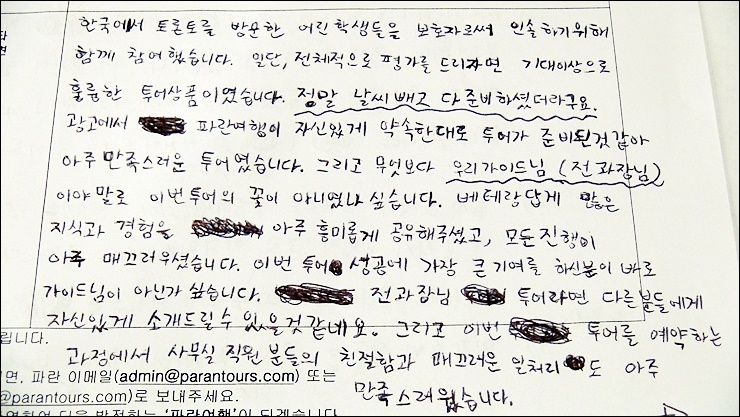 한국에서 토론토를 방문한 어린 학생들을 보호자로써 인솔하기위해
함께 참여했습니다. 일단, 전체적으로 평가를 드리자면 기대이상으로
훌륭한 투어상품이였습니다. 정말 날씨빼고 다 준비하셨더라구요.
광고에서 파란여행이 자신있게 약속한대로 투어가 준비된것같아
아주 만족스러운 투어였습니다. 그리고 무엇보다 우리가이드님 (전과장님)
이야 말로 이번투어의 꽃이 아니였나 싶습니다. 베테랑답게 많은
지식과 경험을 아주 흥미롭게 공유해주셨고, 모든진행이
아주 매끄러우셨습니다. 이번 투어 성공에 가장 큰 기여를 하신분이 바로
가이드님이 아닌가 싶습니다. 전과장님 투어라면 다른분들에게
자신있게 소개드릴수 있을것같네요. 그리고 이번 투어를 예약하는
과정에서 사무실 직원 분들의 친절함과 매끄러운 일처리도 아주
만족스러웠습니다.
립니다.
면, 파란 이메일(admin@parantours.com) 또는
@parantours.com)로 보내주세요.